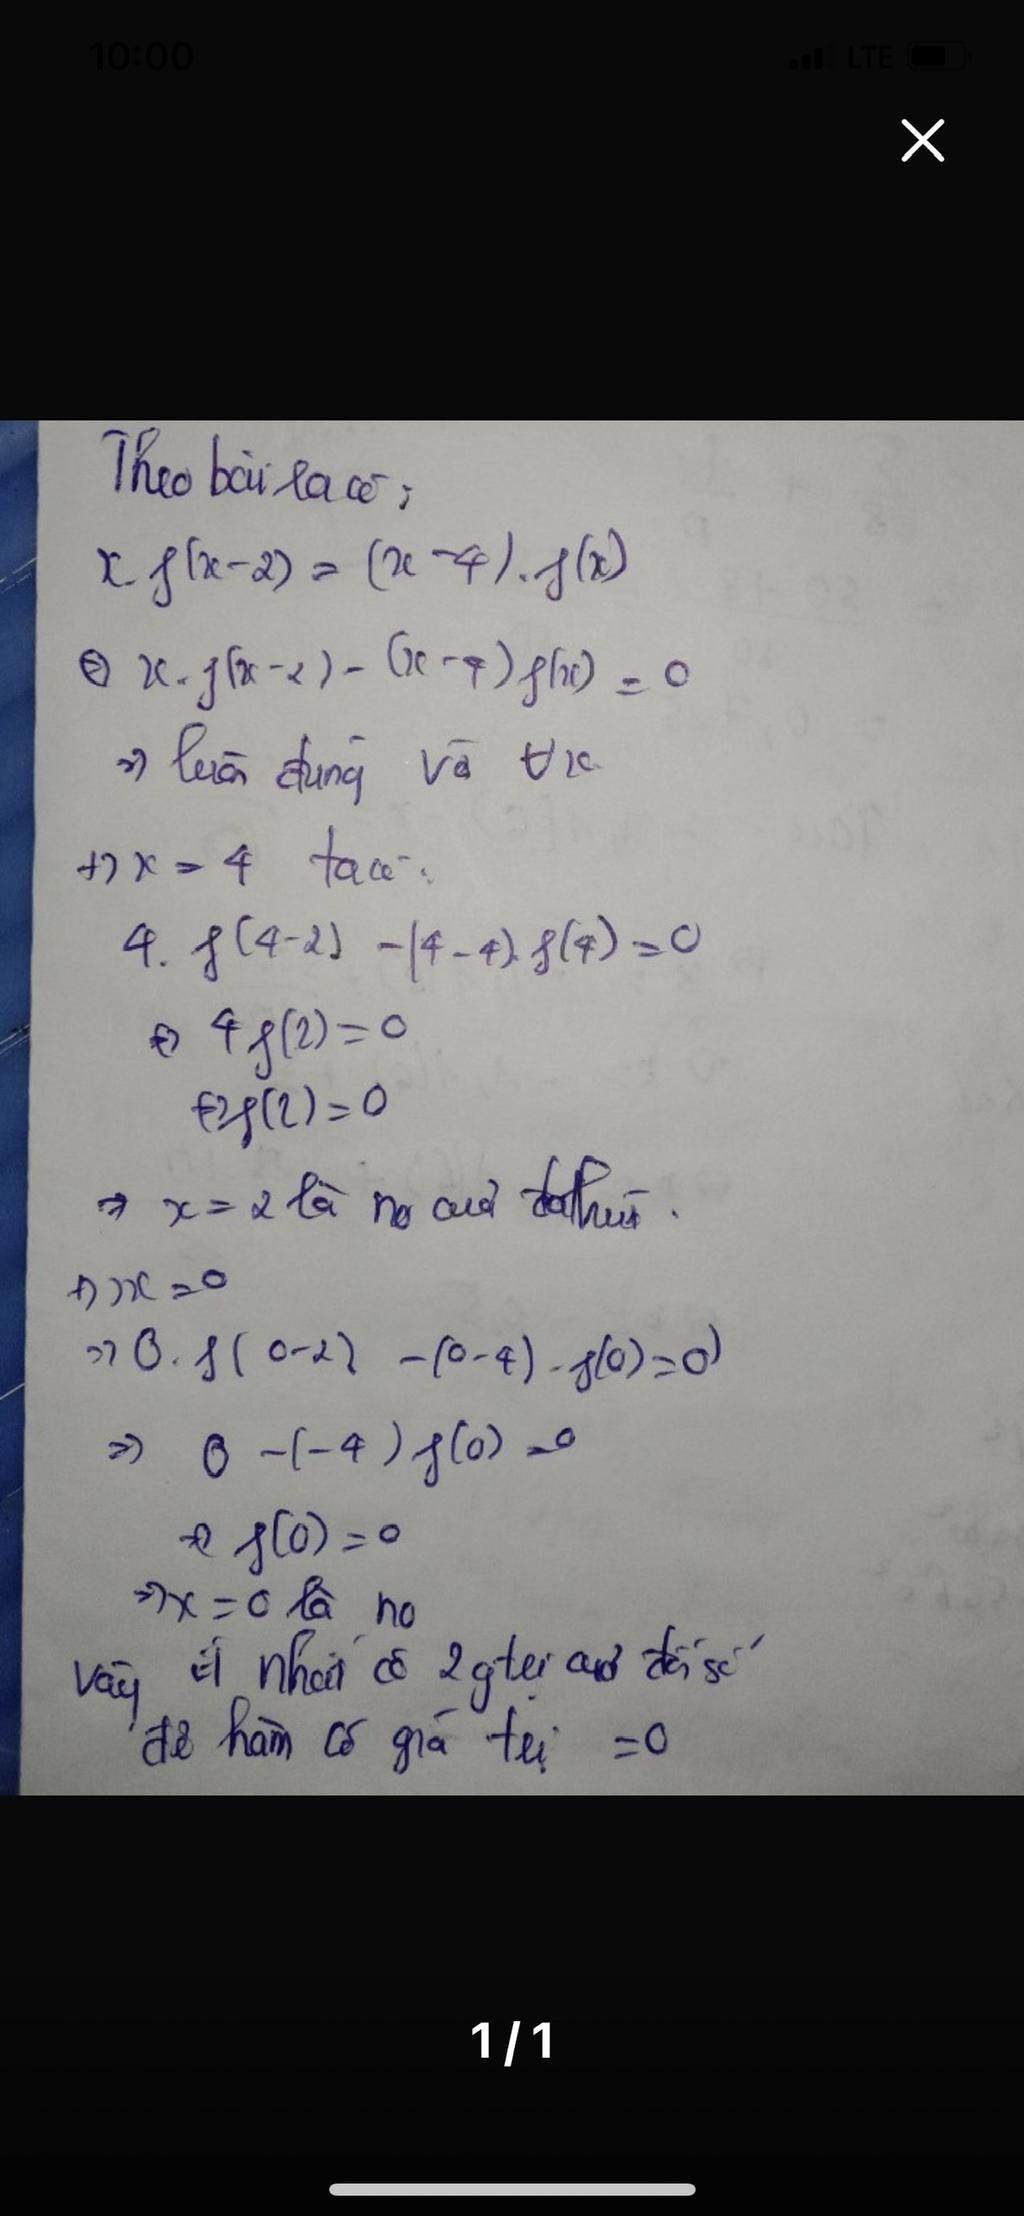 10:00 LTE
Theo bài ra có;
x f(x-2) = (x-4).f(x)
⇔ x.f(x-2) - (x-4)f(x) = 0
=> luôn đúng với ∀x
+) x = 4 ta có:
4. f(4-2) -(4-4).f(4)=0
⇔ 4f(2)=0
⇔f(2)=0
=> x=2 là no của đa thức.
+) x=0
=> 0.f(0-2) -(0-4).f(0)=0
=> 0 -(-4)f(0)=0
⇔ f(0)=0
=>x=0 là no
Vậy ít nhất có 2 gtrị của đối số
để hàm có giá trị =0
1/1